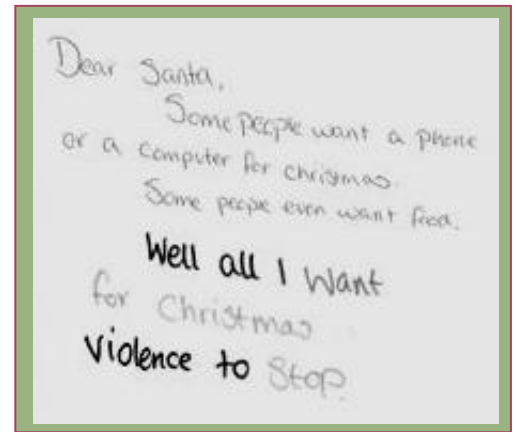 Dear Santa,
Some people want a phone
or a computer for christmas.
Some people even want food.
Well all I want
for Christmas
Violence to Stop.